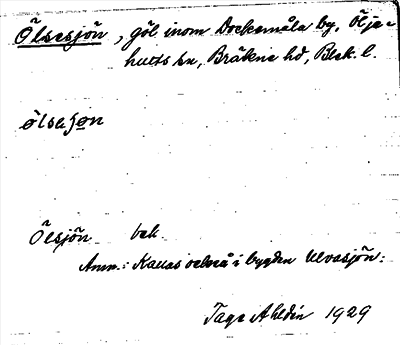 Ölsesjön, göl inom Dockemåla by, Ölje-
hults sn, Bräkne hd, Blek. l.
ølsesøn
Ölsjön bek.
Anm.: Kallas också i bygden Ulvasjön.
Tage Ahldén 1929